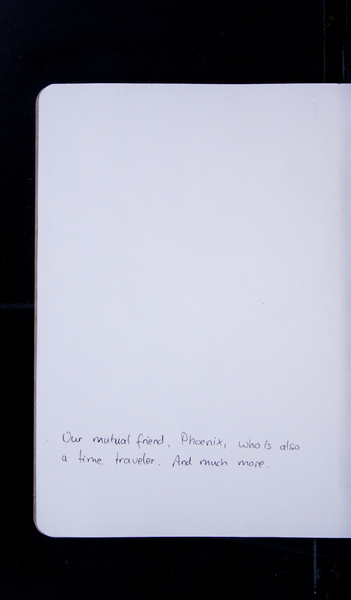 Our mutual friend, Phoenix, who is also
a time traveler. And much more.